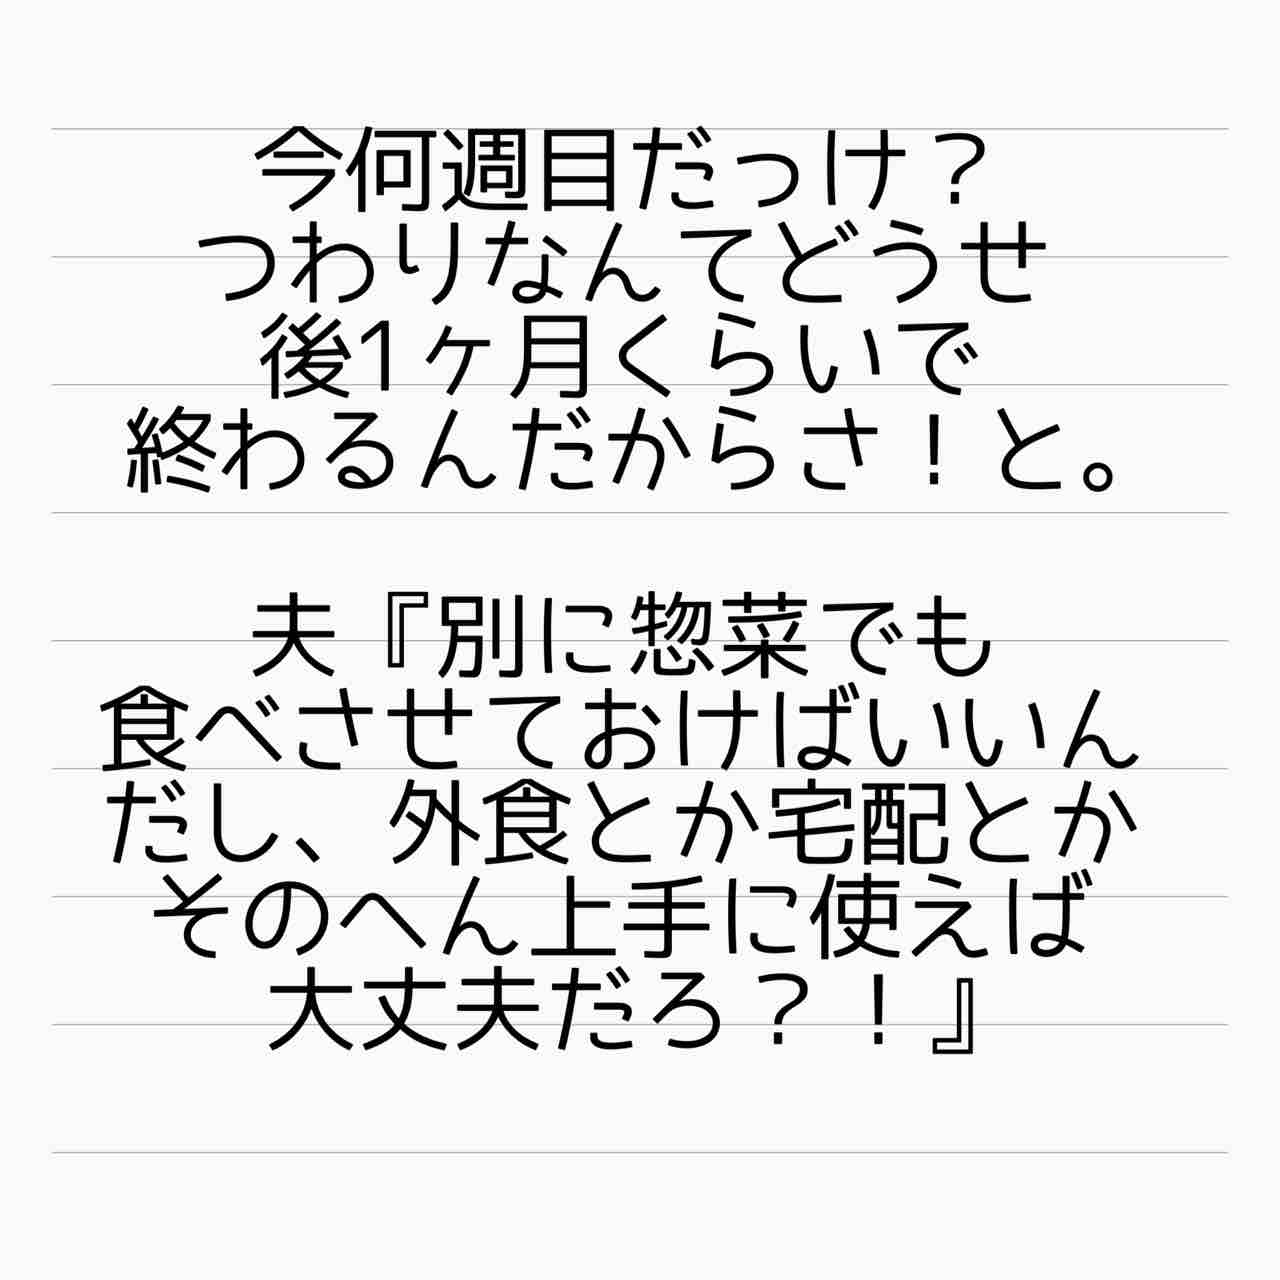 今何週目だっけ？
つわりなんてどうせ
後1ヶ月くらいで
終わるんだからさ！と。
夫『別に惣菜でも
食べさせておけばいいん
だし、外食とか宅配とか
そのへん上手に使えば
大丈夫だろ？！』